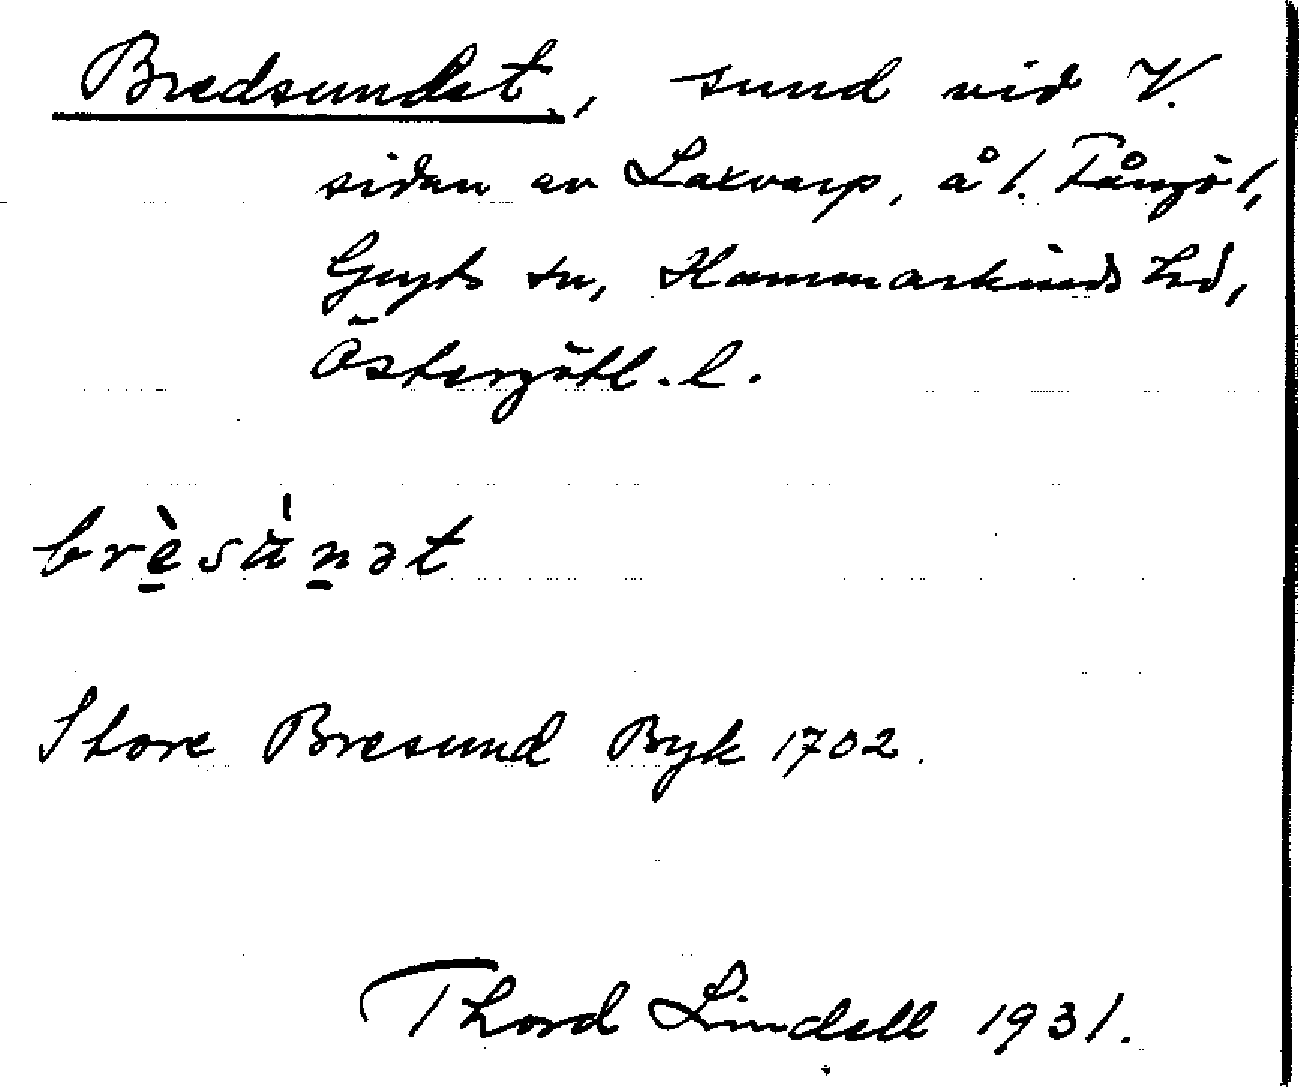 Bredsundet, sund vid V.
sidan av Laxvarp, å l. Fångö l,
Gryts sn, Hammarkinds hd,
Östergötl. l.
brèsànət
Store Bresund Byk 1702.
Thord Lindell 1931.